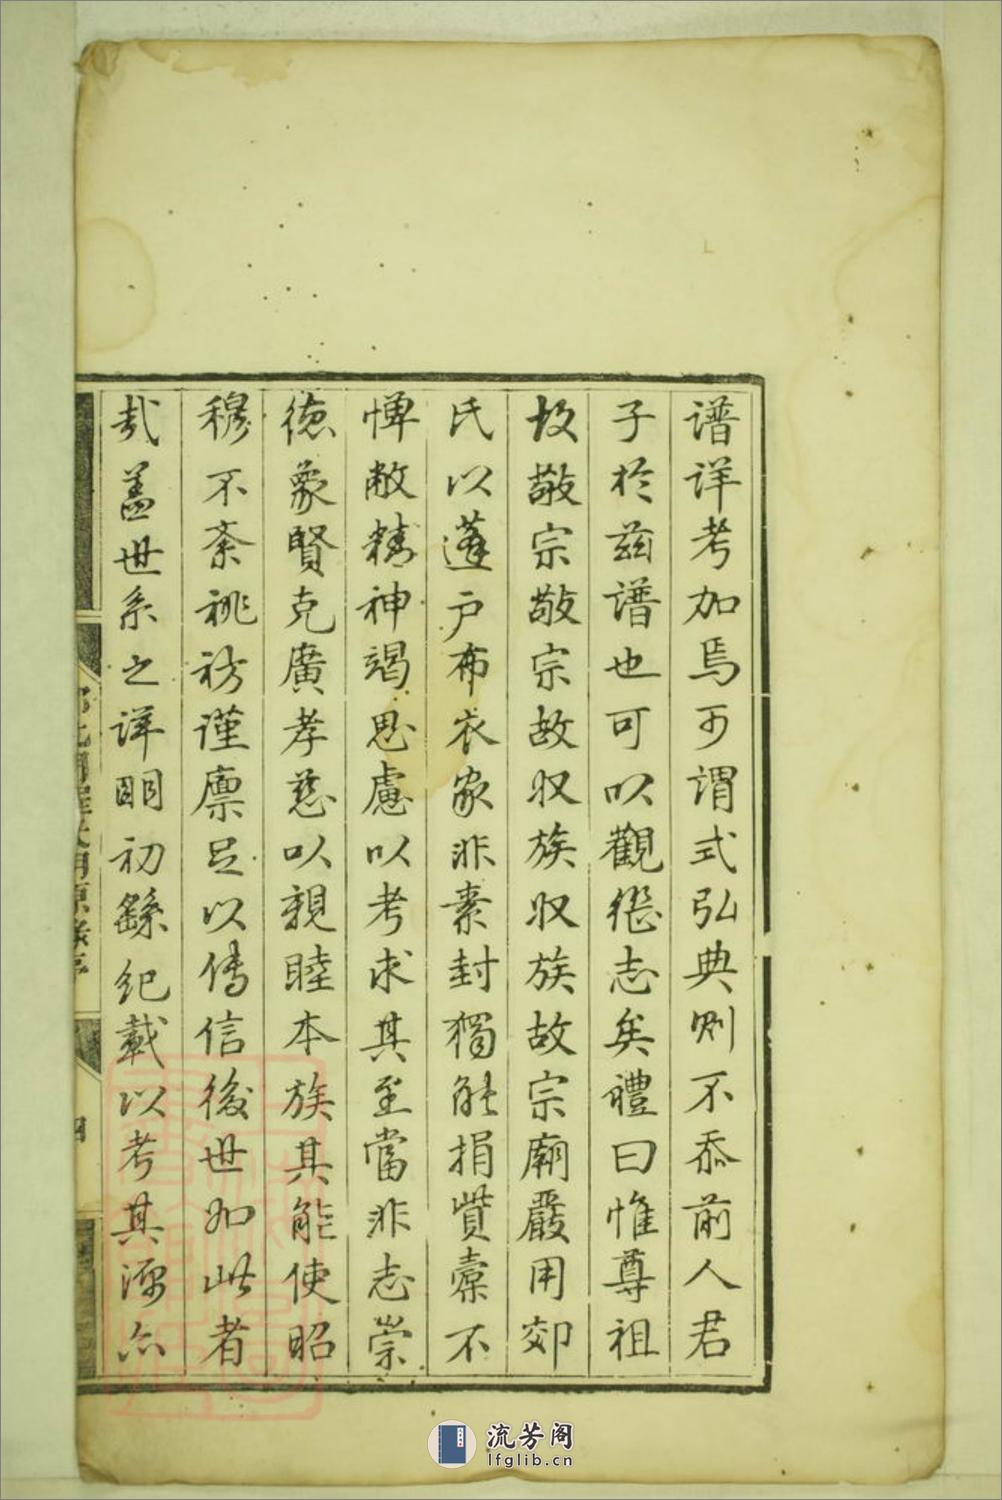 譜詳考加焉可謂式弘典則不忝前人君
子於茲譜也可以觀繼志矣禮曰惟尊祖
故敬宗敬宗故収族収族故宗廟嚴用郊
氏以蓬戸布衣家非素封獨能捐貲橐不
憚敝精神竭思慮以考求其至當非志崇
德象賢克廣孝慈以親睦本族其能使昭
穆不紊祧祊謹廩足以傳信後世如此者
㢤盖世系之詳明初繇紀載以考其源六
四
流芳阁
lfglib.cn